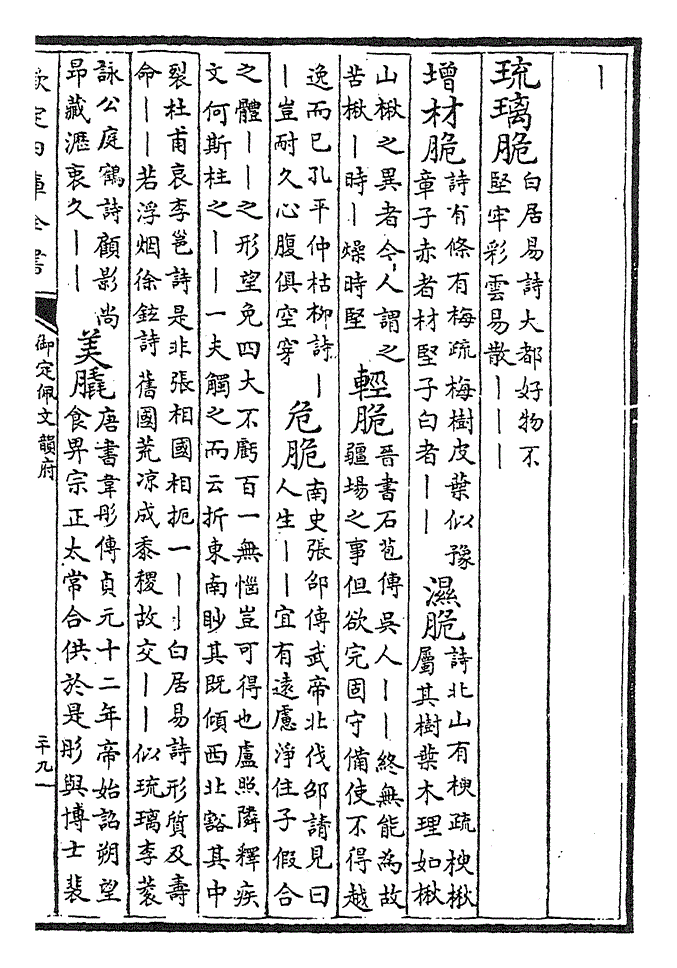 丨
琉璃脆
白居易詩大都好物不
堅牢彩雲易散丨丨丨
增材脆
詩有條有梅疏梅樹皮葉似豫
章子赤者材堅子白者丨丨
濕脆
詩北山有楰疏楰楸
屬其樹葉木理如楸
山楸之異者今人謂之
苦楸丨時丨燥時堅
輕脆
晉書石苞傳吳人丨丨終無能為故
疆場之事但欲完固守備使不得越
逸而已孔平仲枯柳詩丨
丨豈耐久心腹俱空穿
危脆
南史張邵傳武帝北伐邵請見曰
人生丨丨宜有遠慮淨住子假合
之體丨丨之形望免四大不虧百一無惱豈可得也盧照隣釋疾
文何斯柱之丨丨一夫觸之而云折東南眇其既傾西北豁其中
裂杜甫哀李邕詩是非張相國相扼一丨丨白居易詩形質及壽
命丨丨若浮烟徐鉉詩舊國荒凉成黍稷故交丨丨似琉璃李蓘
詠公庭鶴詩顧影尚
昂藏瀝衷久丨丨
美膬
唐書韋彤傳貞元十二年帝始詔朔望
食畀宗正太常合供於是彤與博士裴
欽定四庫全書
御定佩文韻府